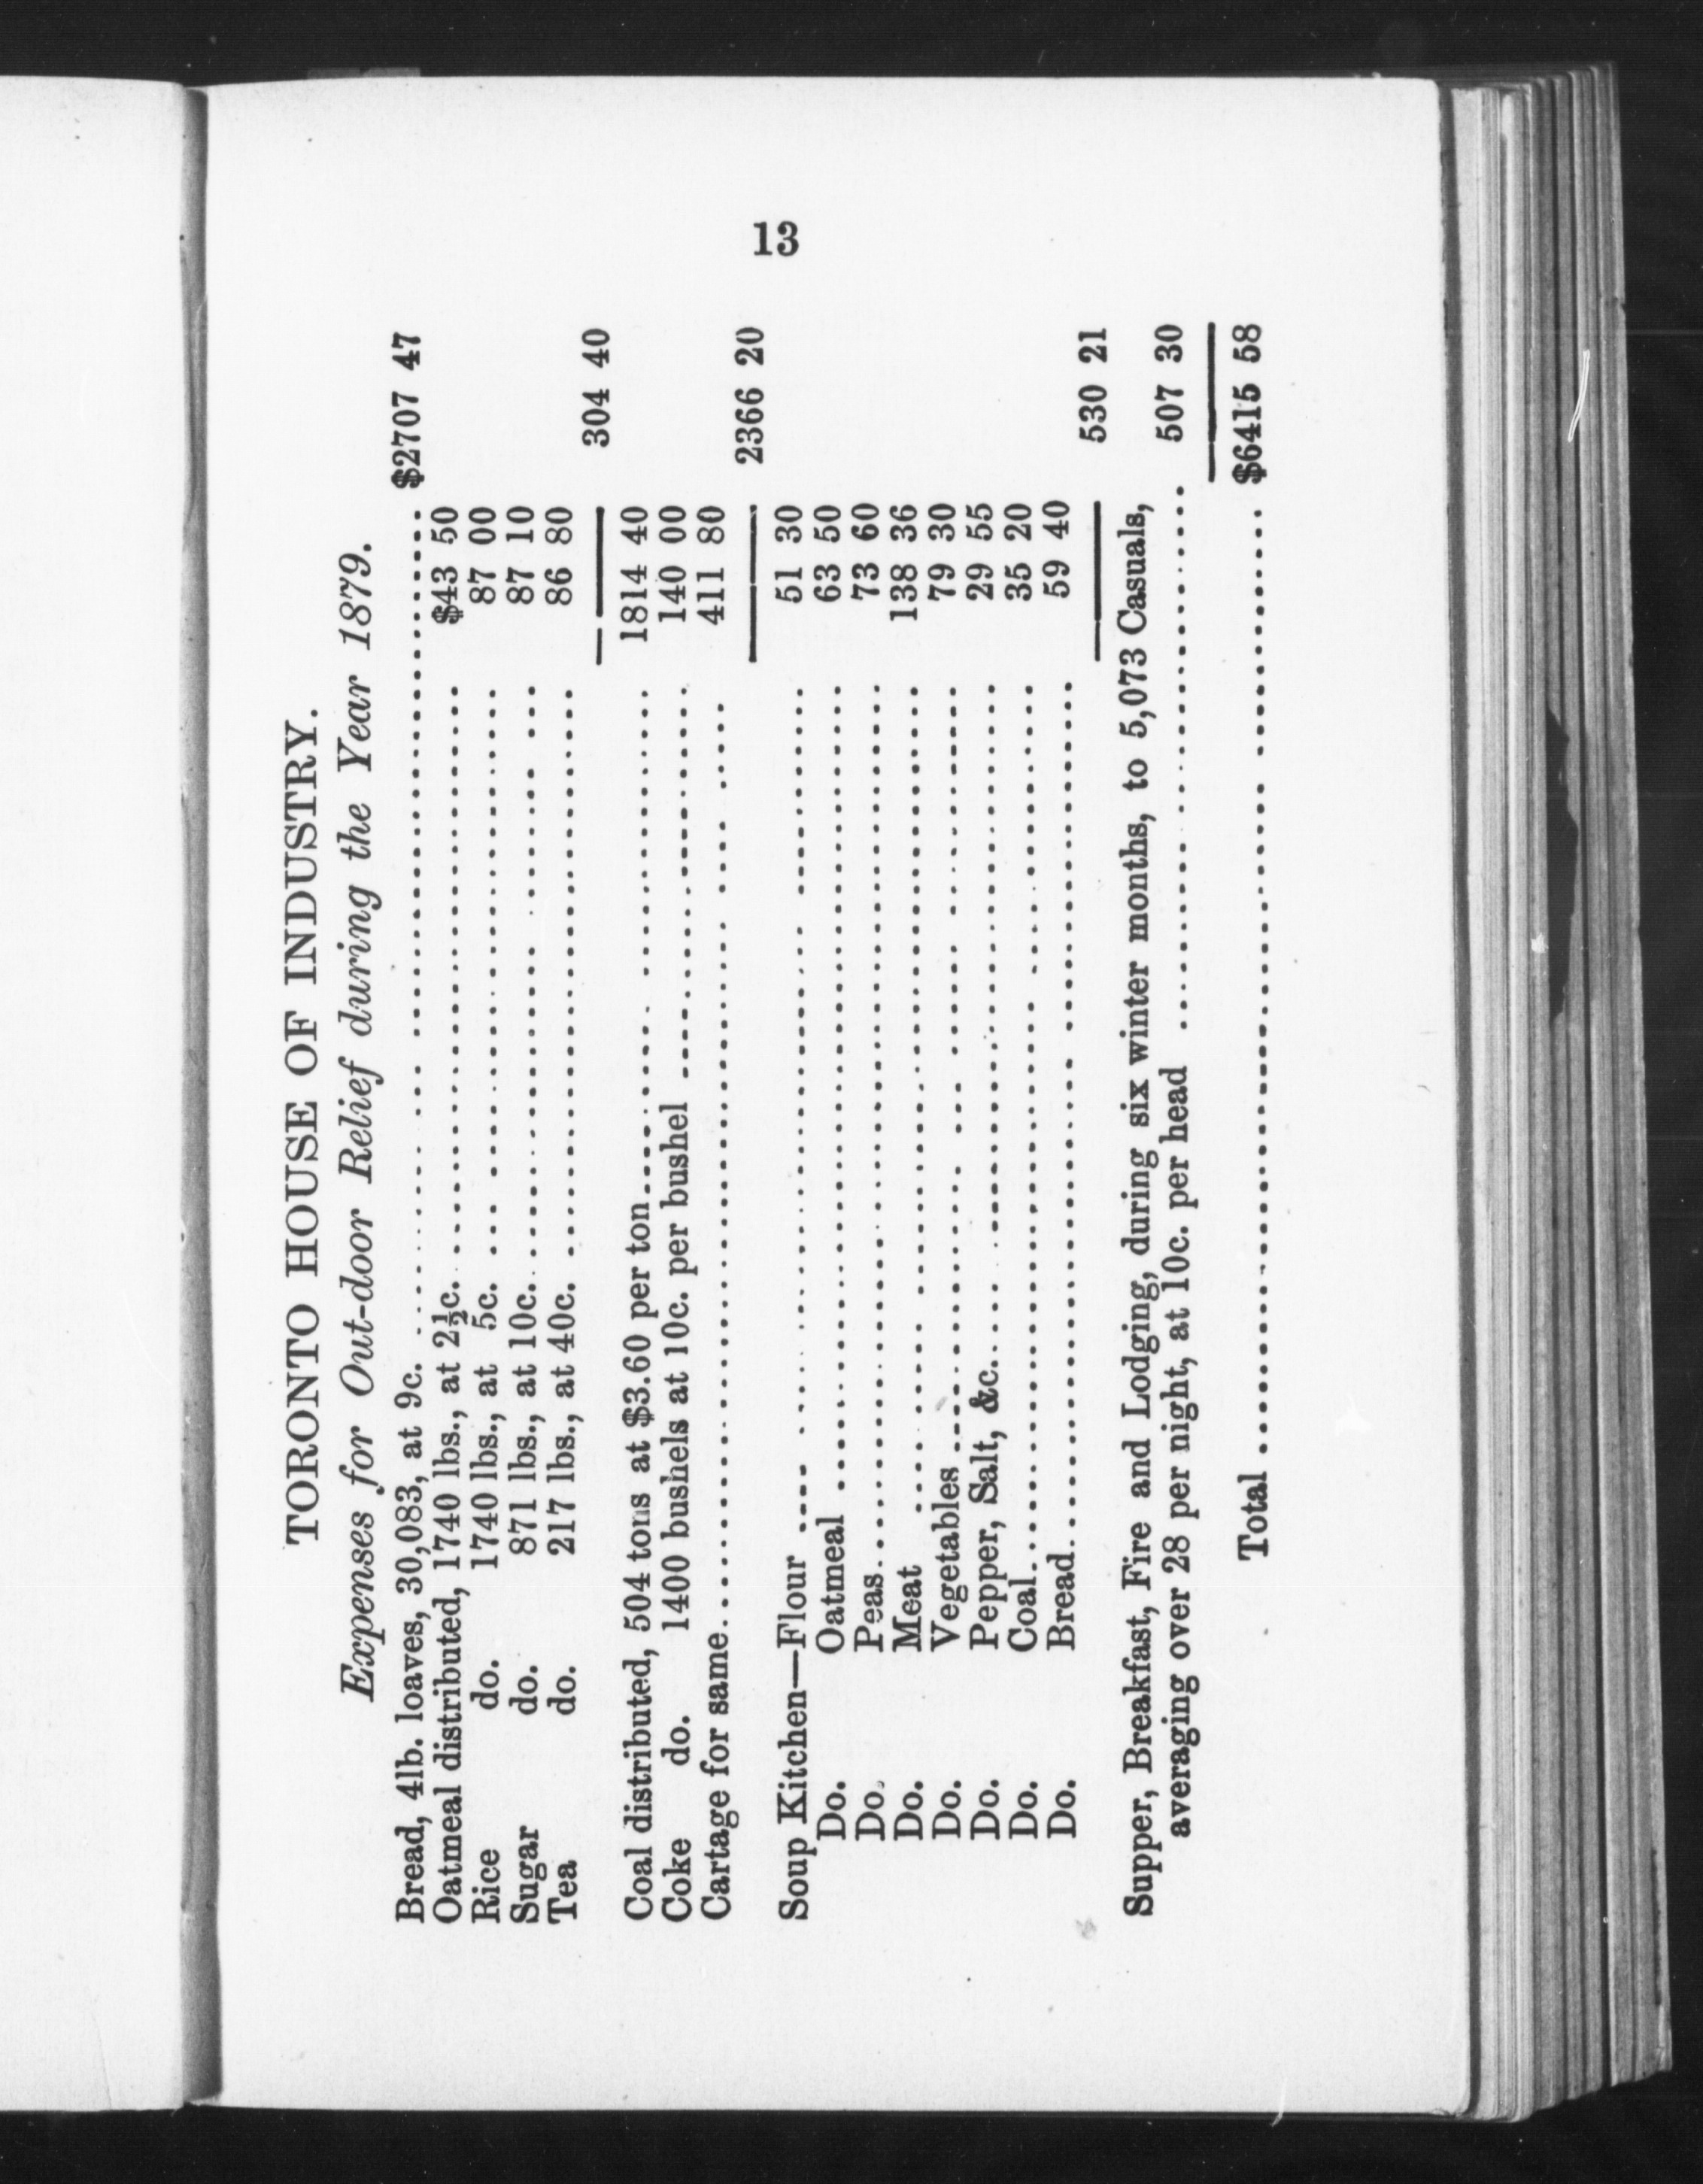 13
TORONTO HOUSE OF INDUSTRY.
Expenses for Out-door Relief during the Year 1879.
Bread, 4lb. loaves, 30,083, at 9c. $2707 47
Oatmeal distributed, 1740 lbs., at 2½c. $43 50
Rice do. 1740 lbs., at 5c. 87 00
Sugar do. 871 lbs., at 10c. 87 10
Tea do. 217 lbs., at 40c. 86 80
304 40
Coal distributed, 504 tons at $3.60 per ton 1814 40
Coke do. 1400 bushels at 10c. per bushel 140 00
Cartage for same 411 80
2366 20
Soup Kitchen—Flour 51 30
Do. Oatmeal 63 50
Do. Peas 73 60
Do. Meat 138 36
Do. Vegetables 79 30
Do. Pepper, Salt, &c. 29 55
Do. Coal 35 20
Do. Bread 59 40
530 21
Supper, Breakfast, Fire and Lodging, during six winter months, to 5,073 Casuals,
averaging over 28 per night, at 10c. per head 507 30
Total $6415 58